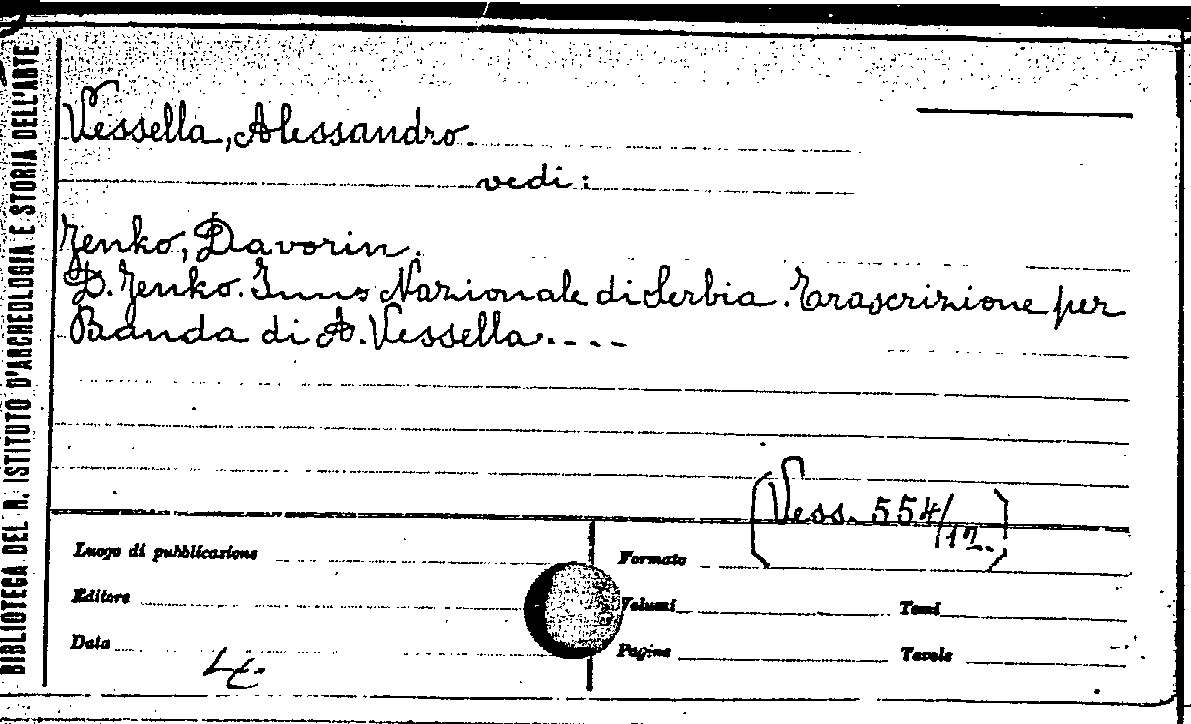 BIBLIOTECA DEL R. ISTITUTO D'ARCHEOLOGIA E STORIA DELL'ARTE
Vessella, Alessandro.
vedi:
Jenko, Davorin.
D. Jenko. Inno Nazionale di Serbia. Trascrizione per
Banda di A. Vessella....
(Vess. 554/12.)
Luogo di pubblicazione
Formato
Editore
Volumi
Tomi
Data
Pagine
Tavole